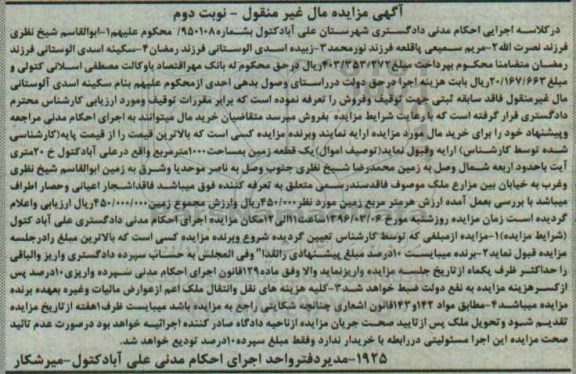 آگهی مزایده مال غیر منقول - نوبت دوم
درکلاسه اجرایی احکام مدنی دادگستری شهرستان علی آبادکتول بشماره ۹۵۰۱۰۸/ محکوم علیهم۱-ابوالقاسم شیخ نظری
فرزند نصرت الله۲-مریم سمیعی پاقلعه فرزند نورمحمد۳-زبیده اسدی الوستانی فرزند رمضان۴-سکینه اسدی الوستانی فرزند
رمضان متضامنا محکوم بپرداخت مبلغ۴۰۳/۳۵۳/۲۷۲ریال درحق محکوم له بانک مهراقتصاد باوکالت مصطفی اسلانی کتولی و
مبلغ۲۰/۱۶۷/۶۶۳ریال بابت هزینه اجرا درحق دولت درراستای وصول بدهی احدی ازمحکوم علیهم بنام سکینه اسدی آلوستانی
مال غیرمنقول فاقد سابقه ثبتی جهت توقیف وفروش را تعرفه نموده است که برابر مقررات توقیف ومورد ارزیابی کارشناس محترم
دادگستری قرار گرفته است که با رعایت شرایط مزایده بفروش میرسد متقاضیان خرید مال میتوانند به اجرای احکام مدنی مراجعه
وپیشنهاد خود را برای خرید مال مورد مزایده ارایه نمایند وبرنده مزایده کسی است که بالاترین قیمت را از قیمت پایه(کارشناسی
شده توسط کارشناس) ارایه وقبول نماید(توصیف اموال) یک قطعه زمین بمساحت۱۰۰۰مترمربع واقع درعلی آبادکتول خ ۲۰متری
آیت باحدود اربعه شمال وصل به زمین محمدرضا شیخ نظری جنوب وصل به ناصر موحدیا وشرق به زمین ابوالقاسم شیخ نظری
وغرب به خیابان بین مزارع ملک موصوف فاقدسندرسمی متعلق به تعرفه کننده فوق میباشد فاقداشجار اعیانی وحصار اطراف
میباشد با بررسی بعمل آمده ارزش هرمتر مربع زمین مورد نظر۴۵۰/۰۰۰ریال وارزش مجموع زمین۴۵۰/۰۰۰/۰۰۰ریال ارزیابی واعلام
گردیده است زمان مزایده روزشنبه مورخ ۱۳۹۶/۰۳/۰۶ساعت۱۱الی۱۲مکان مزایده اجرای احکام مدنی دادگستری علی آباد کتول
(شرایط مزایده)۱-مزایده ازمبلغی که توسط کارشناس تعیین گردیده شروع وبرنده مزایده کسی است که بالاترین مبلغ رادرجلسه
مزایده قبول نماید۲-برنده میبایست ۱۰درصد مبلغ پیشنهادی رانقدا" وفی المجلس به حساب سپرده دادگستری واریز والباقی
را حداکثر ظرف یکماه ازتاریخ جلسه مزایده واریزنماید والا وفق ماده۱۲۹قانون اجرای احکام مدنی سپرده واریزی۱۰درصد پس
ازکسرهزینه مزایده به نفع دولت ضبط خواهد شد۳-کلیه هزینه های نقل وانتقال ملک اعم ازعوارض مالیات وغیره بعهده برنده
مزایده میباشد۴-مطابق مواد ۱۴۲و۱۴۳قانون اشعاری چنانچه شکایتی راجع به مزایده باشد میبایست ظرف۱هفته ازتاریخ مزایده
تقدیم شود وتحویل ملک پس ازتایید صحت جریان مزایده ازناحیه دادگاه صادر کننده اجرائیه خواهد بود درصورت عدم تائید
صحت مزایده این اجرا مسئولیتی دررابطه با خریدار ندارد وفقط مبلغ سپرده۱۰درصد تودیع خواهد شد.
۱۹۲۵-مدیردفترواحد اجرای احکام مدنی علی آبادکتول-میرشکار